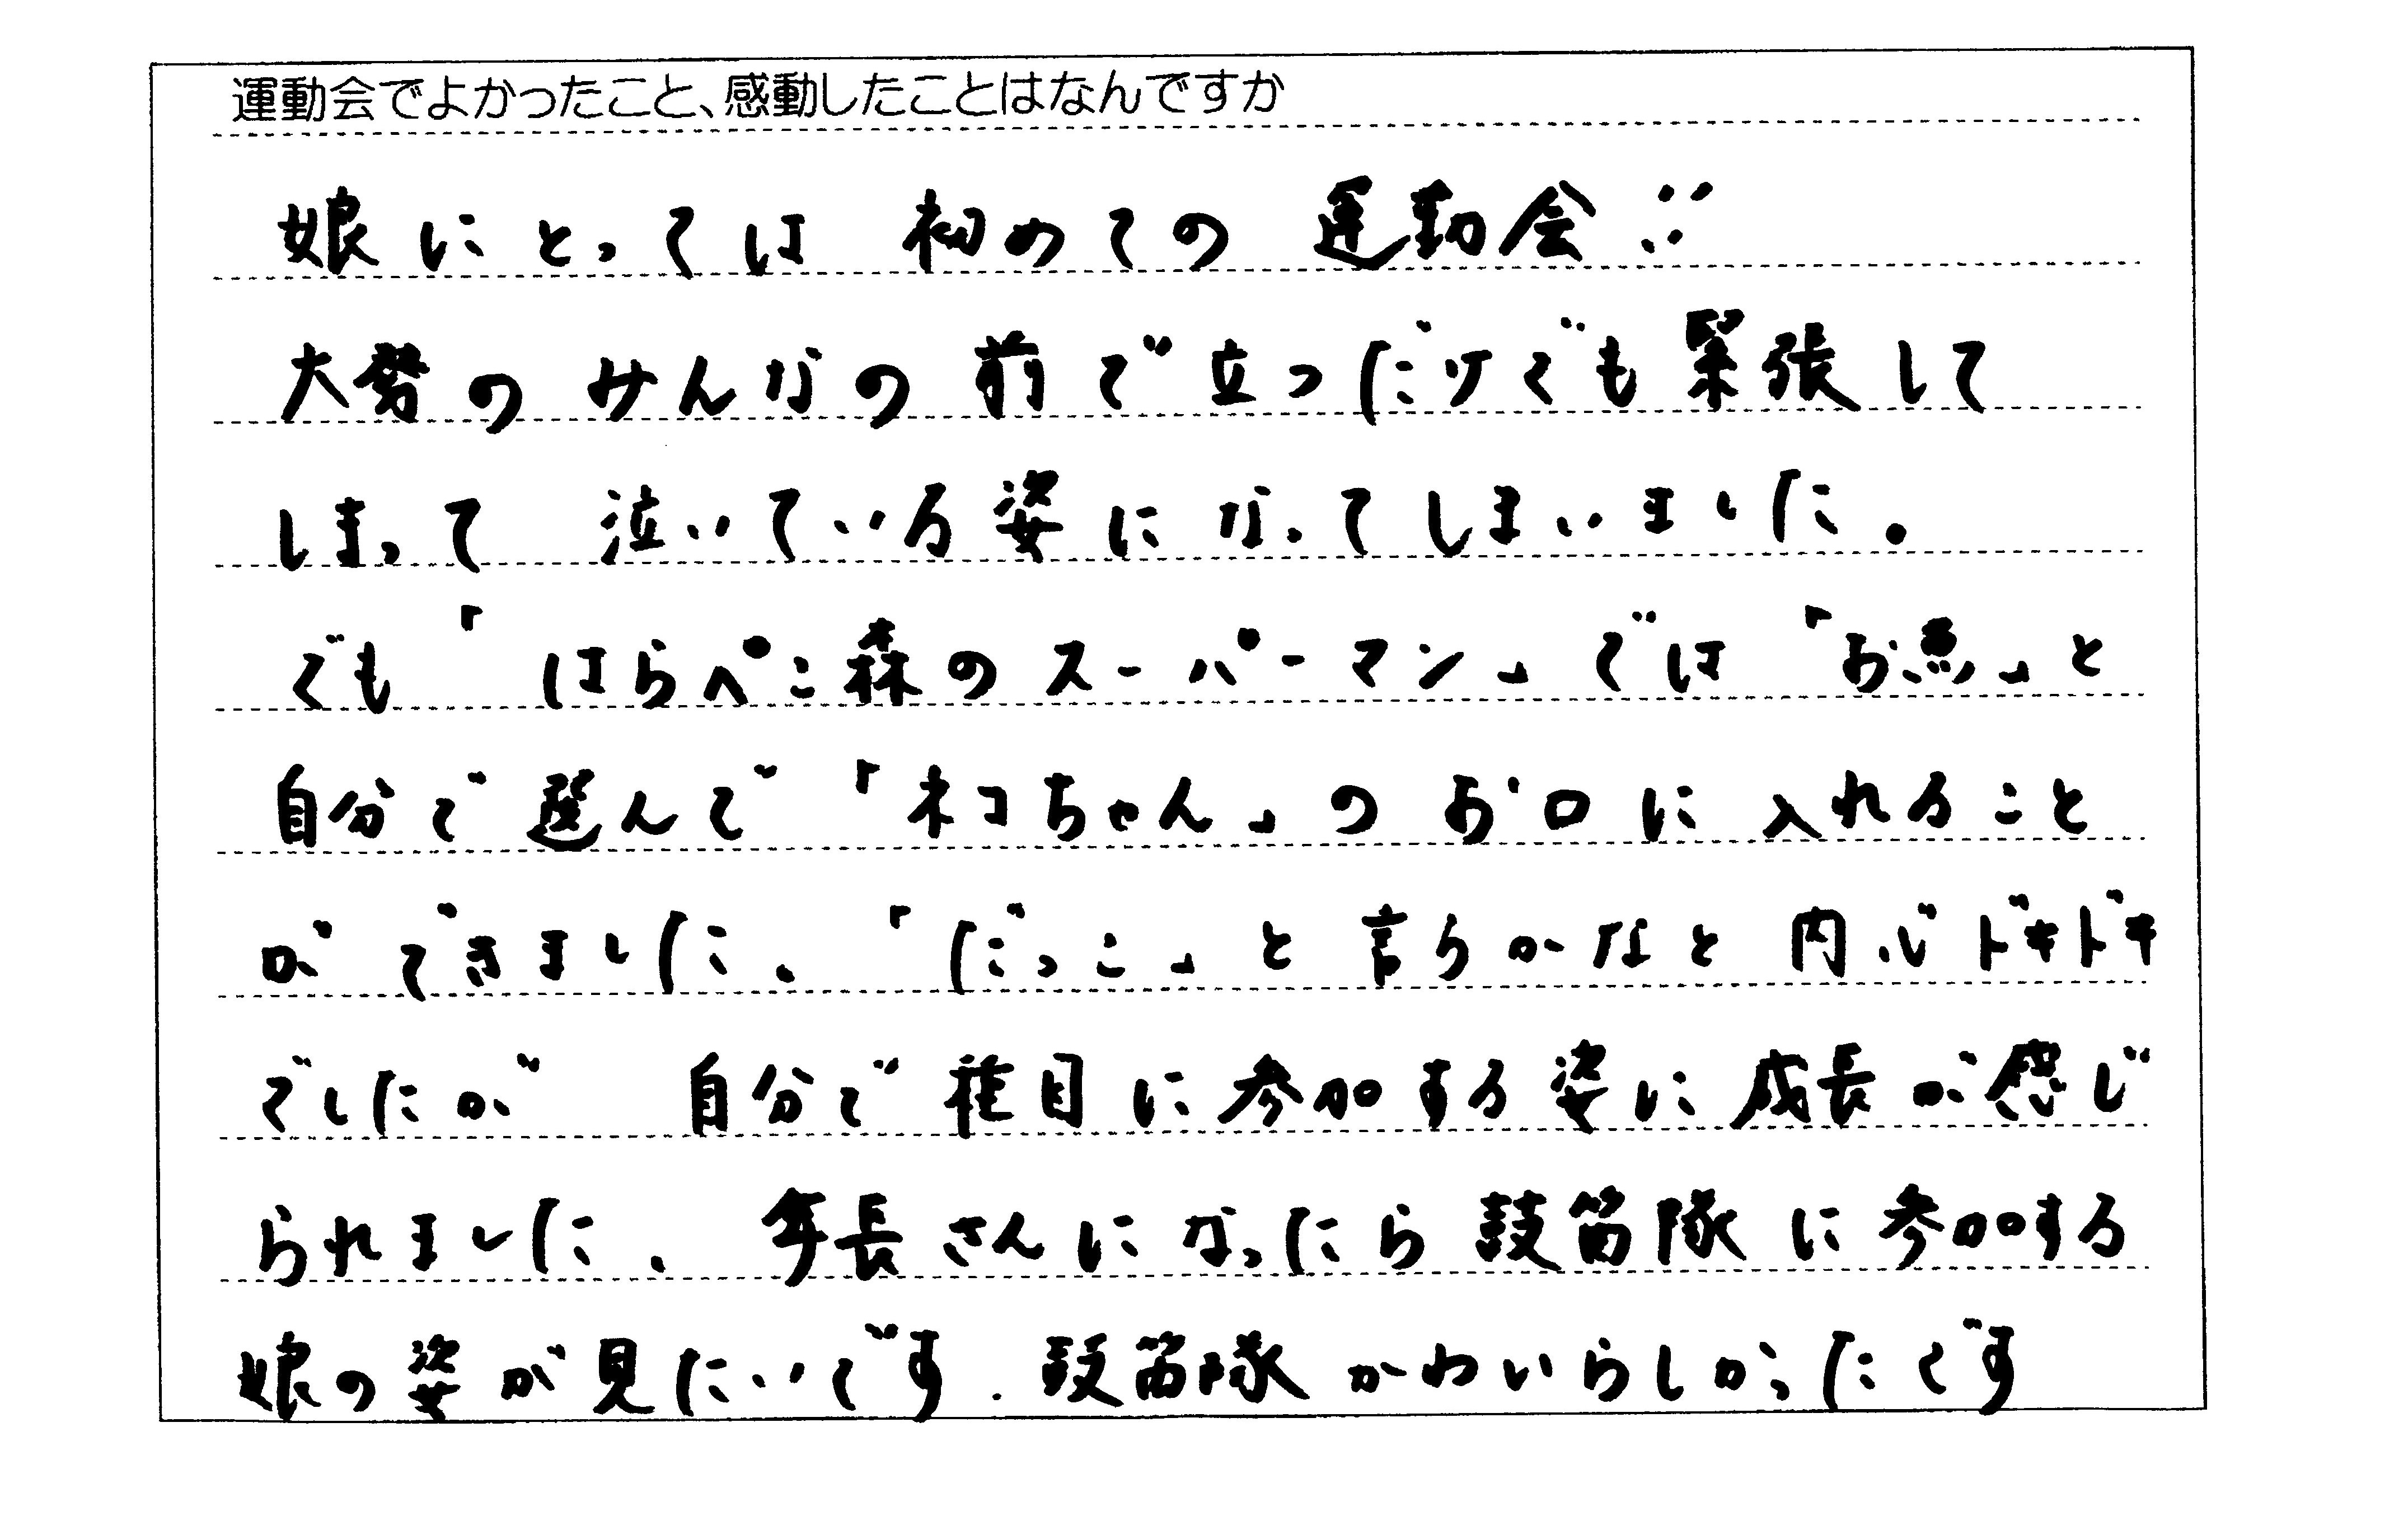 運動会でよかったこと、感動したことはなんですか
娘にとっては 初めての 運動会!!
大勢の みんなの 前で立っただけでも緊張して
しまって 泣いている姿に なってしまいました。
でも「はらぺこ森のスーパーマン」では「お魚」と
自分で選んで「ネコちゃん」のお口に入れること
ができました。「だっこ」と言うかなと内心ドキドキ
でしたが 自分で種目に参加する姿に成長が感じ
られました。 年長さんになったら鼓笛隊に参加する
娘の姿が見たいです.鼓笛隊かわいらしかったです